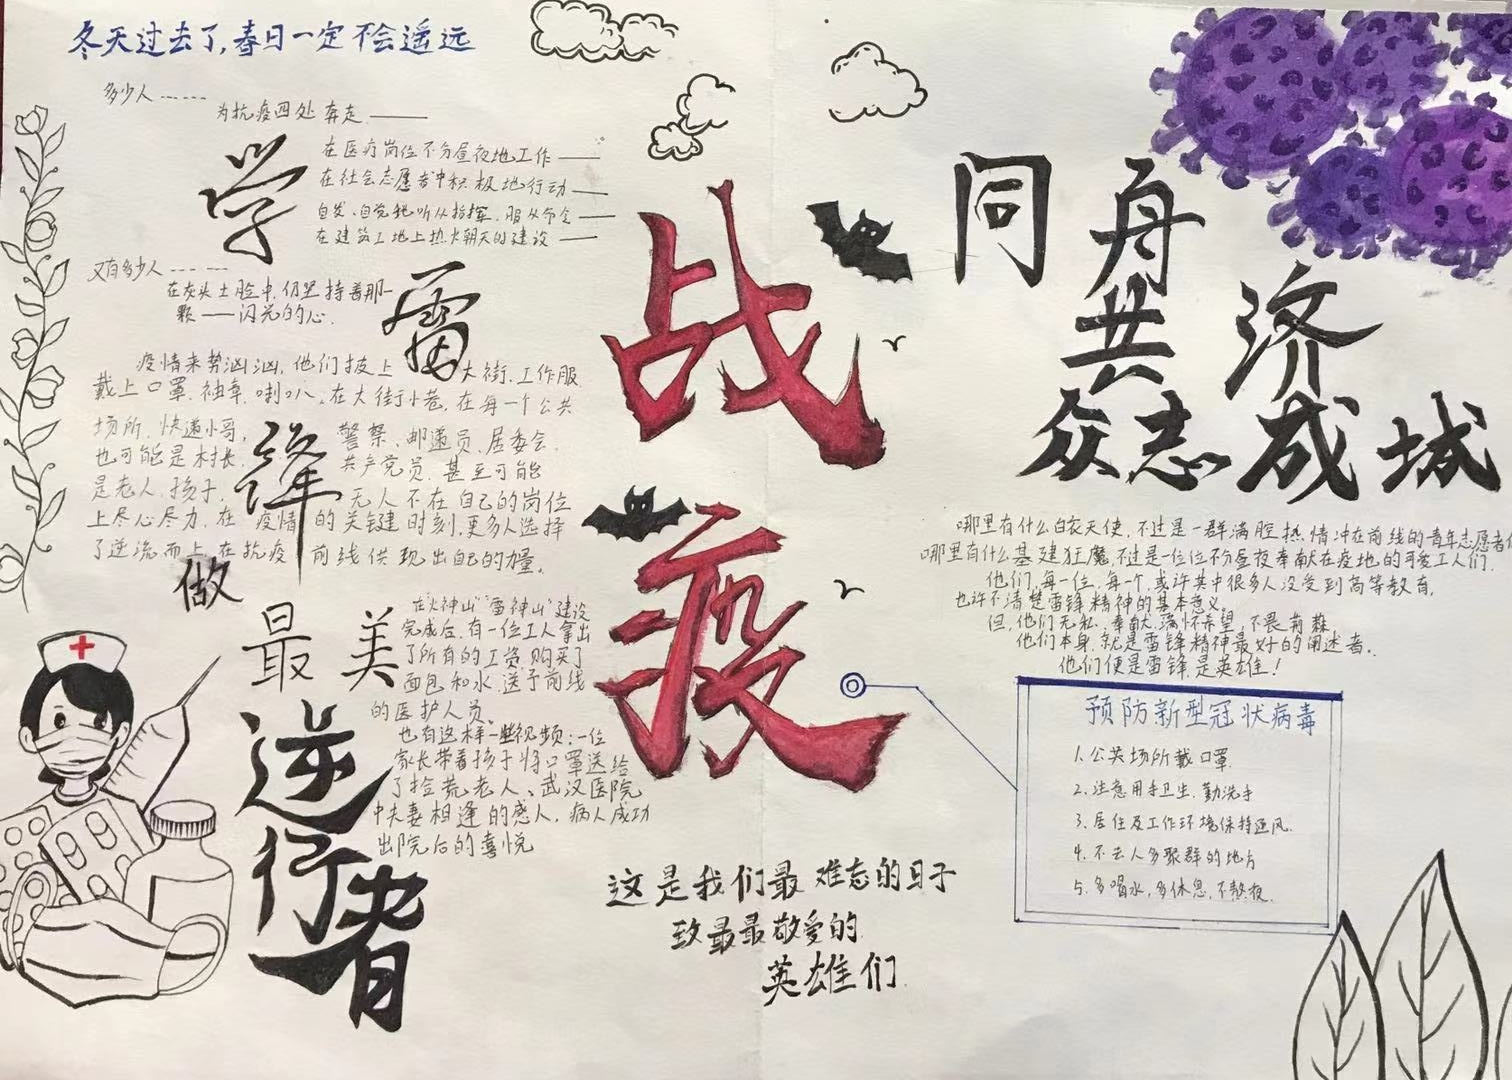 冬天过去了,春日一定不会遥远
多少人------
为抗疫四处奔走——
在医疗岗位不分昼夜地工作——
在社会志愿者中积极地行动——
自发、自觉地听从指挥、服从命令——
在建筑工地上热火朝天的建设——
又有多少人------
在灰头土脸中,仍坚持着那一
颗——闪光的心.
学
雷
锋
疫情来势汹汹,他们披上大街、工作服
戴上口罩、袖章、喇叭、在大街小巷,在每一个公共
场所,快递小哥,警察、邮递员、居委会.
也可能是村长,共产党员,甚至可能
是老人,孩子,无人不在自己的岗位
上尽心尽力,在疫情的关键时刻,更多人选择
了逆流而上,在抗疫前线供现出自己的力量。
做
最美
逆
行
者
在"火神山""雷神山"建设
完成后,有一位工人拿出
了所有的工资,购买了
面包和水,送予前线
的医护人员、
也有这样一些视频:一位
家长带着孩子将口罩送给
了捡荒老人、武汉医院
中夫妻相逢的感人,病人成功
出院后的喜悦
战
疫
这是我们最难忘的日子
致最最敬爱的
英雄们
同舟
共济
众志成城
哪里有什么白衣天使,不过是一群满腔热情冲在前线的青年志愿者
哪里有什么基建狂魔,不过是一位位不分昼夜奉献在疫地的可爱工人们.
他们,每一位,每一个,或许其中很多人没受到高等教育,
也许不清楚雷锋精神的基本意义,
但,他们无私、奉献、满怀希望,不畏荆棘
他们本身,就是雷锋精神最好的阐述者.
他们便是雷锋,是英雄!
预防新型冠状病毒
1.公共场所戴口罩.
2.注意用手卫生,勤洗手
3.居住及工作环境保持通风.
4.不去人多聚群的地方
5.多喝水,多休息,不熬夜.